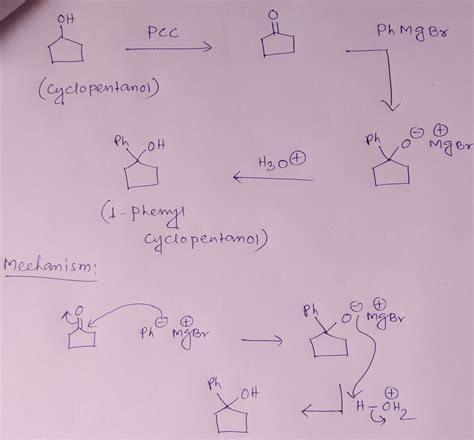 OH
PCC
O
PhMgBr
(cyclopentanol)
Ph O ⊖ ⊕ MgBr
Ph OH
H3O⊕
(1-phenyl
cyclopentanol)
Mechanism:
O
Ph⊖ ⊕MgBr
Ph O ⊖ ⊕ MgBr
Ph OH
H-OH2 ⊕